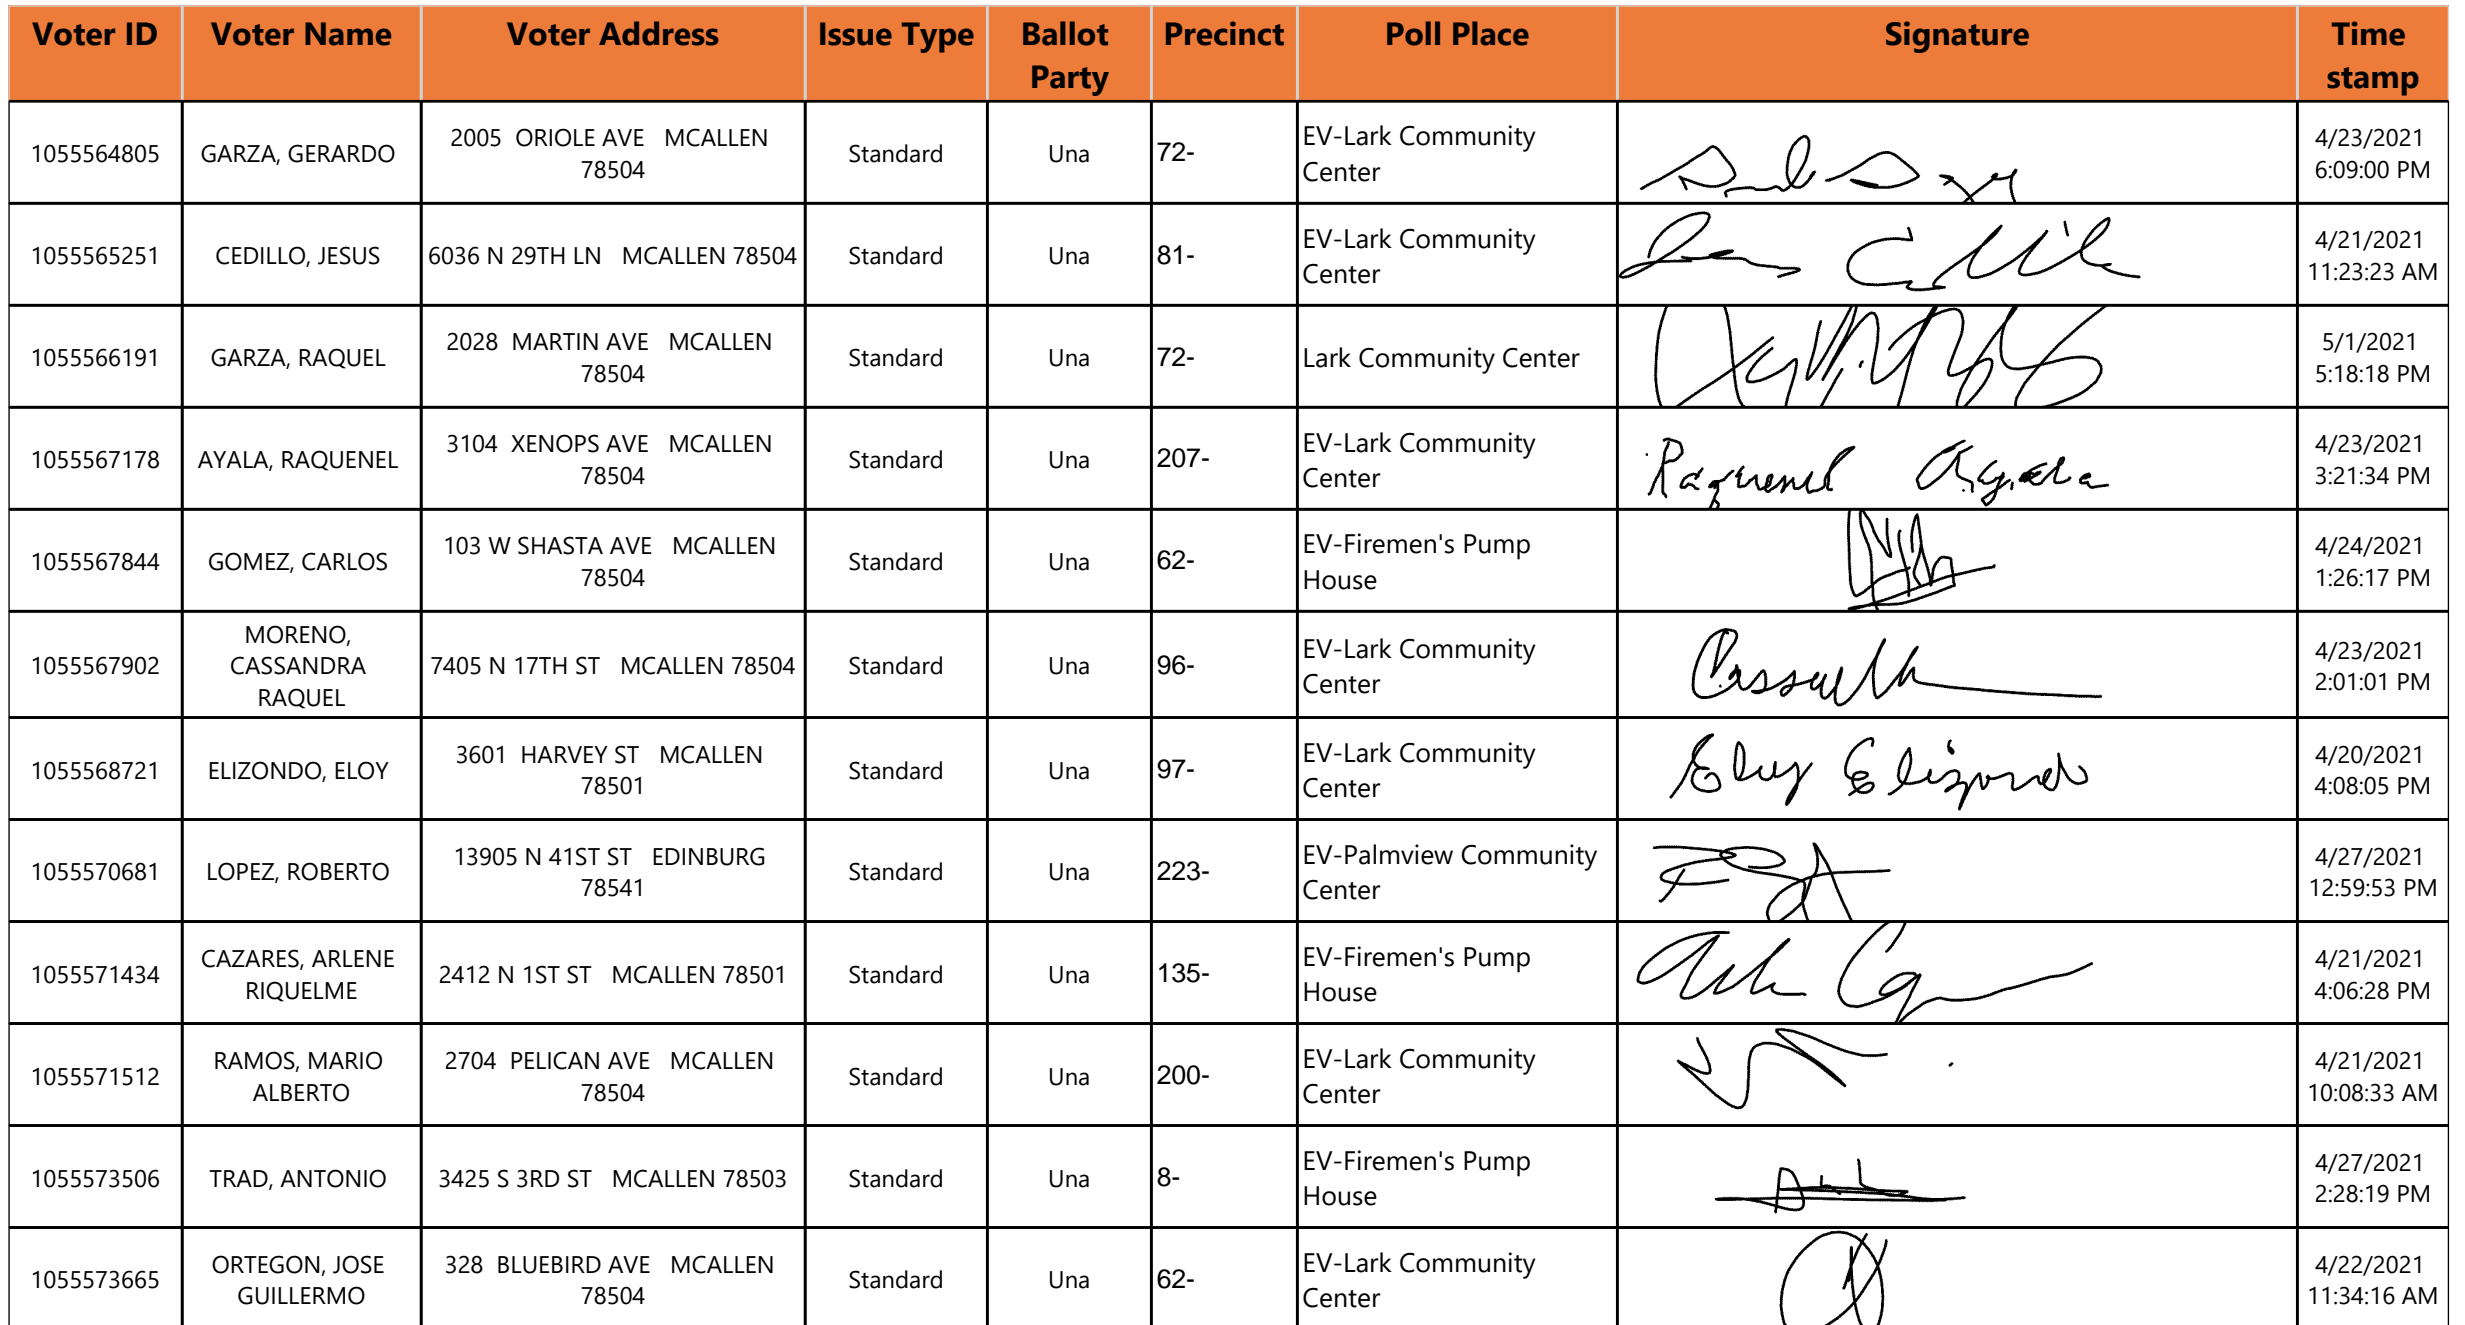 Voter ID Voter Name Voter Address Issue Type Ballot Party Precinct Poll Place Signature Time stamp
1055564805 GARZA, GERARDO 2005 ORIOLE AVE MCALLEN 78504 Standard Una 72- EV-Lark Community Center 4/23/2021 6:09:00 PM
1055565251 CEDILLO, JESUS 6036 N 29TH LN MCALLEN 78504 Standard Una 81- EV-Lark Community Center 4/21/2021 11:23:23 AM
1055566191 GARZA, RAQUEL 2028 MARTIN AVE MCALLEN 78504 Standard Una 72- Lark Community Center 5/1/2021 5:18:18 PM
1055567178 AYALA, RAQUENEL 3104 XENOPS AVE MCALLEN 78504 Standard Una 207- EV-Lark Community Center Raquenel Ayala 4/23/2021 3:21:34 PM
1055567844 GOMEZ, CARLOS 103 W SHASTA AVE MCALLEN 78504 Standard Una 62- EV-Firemen's Pump House 4/24/2021 1:26:17 PM
1055567902 MORENO, CASSANDRA RAQUEL 7405 N 17TH ST MCALLEN 78504 Standard Una 96- EV-Lark Community Center 4/23/2021 2:01:01 PM
1055568721 ELIZONDO, ELOY 3601 HARVEY ST MCALLEN 78501 Standard Una 97- EV-Lark Community Center Eloy Elizondo 4/20/2021 4:08:05 PM
1055570681 LOPEZ, ROBERTO 13905 N 41ST ST EDINBURG 78541 Standard Una 223- EV-Palmview Community Center 4/27/2021 12:59:53 PM
1055571434 CAZARES, ARLENE RIQUELME 2412 N 1ST ST MCALLEN 78501 Standard Una 135- EV-Firemen's Pump House 4/21/2021 4:06:28 PM
1055571512 RAMOS, MARIO ALBERTO 2704 PELICAN AVE MCALLEN 78504 Standard Una 200- EV-Lark Community Center 4/21/2021 10:08:33 AM
1055573506 TRAD, ANTONIO 3425 S 3RD ST MCALLEN 78503 Standard Una 8- EV-Firemen's Pump House 4/27/2021 2:28:19 PM
1055573665 ORTEGON, JOSE GUILLERMO 328 BLUEBIRD AVE MCALLEN 78504 Standard Una 62- EV-Lark Community Center 4/22/2021 11:34:16 AM